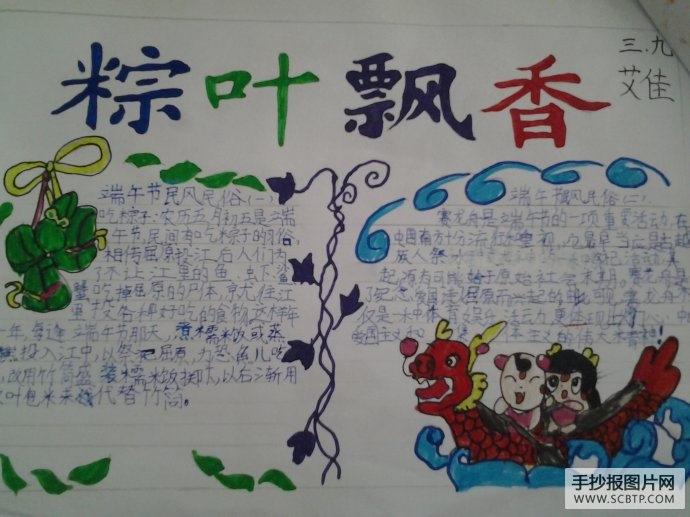 粽叶飘香
三.九
艾佳
端午节民风民俗(一)
吃粽子:农历五月初五是端
午节,民间有吃粽子的习俗。
相传屈原投江后人们为
不让江里的鱼、虫下鲨
蟹吃掉屈原的尸体,就往江
里投各种好吃的食物。这样年
一年,每逢端午节那天,煮糯米饭或蒸
投入江中,以祭屈原,为恐鱼儿吃
,改用竹筒盛装糯米饭掷下,以后渐用
叶包米代替竹筒。
端午节民风民俗(二)
赛龙舟是端午节的一项重要活动,在
中国南方十分流行,最早当是古越
族人祭水
起源有可能始于原始社会末期。赛龙舟是
了纪念爱国诗人屈原而兴起的。由此可见,赛龙舟不
仅是一水中体育娱乐活动,更体现出人们心中的
爱国主义和主义的伟大精神!
手抄报图片网
WWW.SCBTP.COM